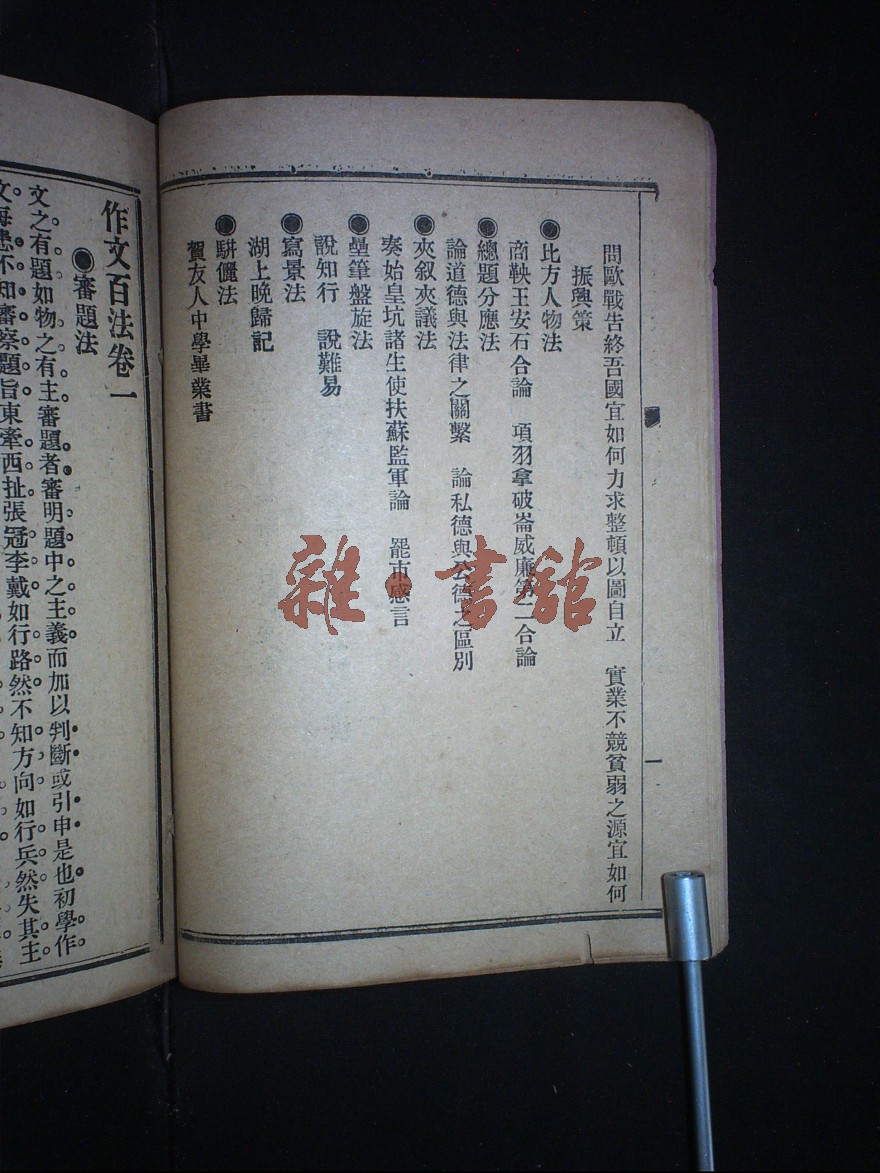 問歐戰告終吾國宜如何力求整頓以圖自立　實業不競貧弱之源宜如何
振興策
●比方人物法
商鞅王安石合論　項羽拿破崙威廉第二合論
●總題分應法
論道德與法律之關繫　論私德與公德之區別
●夾叙夾議法
秦始皇坑諸生使扶蘇監軍論　罷市感言
●壘筆盤旋法
說知行　說難易
●寫景法
湖上晚歸記
●駢儷法
賀友人中學畢業書
一
作文百法卷一
●審題法
文之有題如物之有主審題者審明題中之主義而加以判斷或引申是也初學作
文每患不知審察題旨東牽西扯張冠李戴如行路然不知方向如行兵然失其主
雜·書館